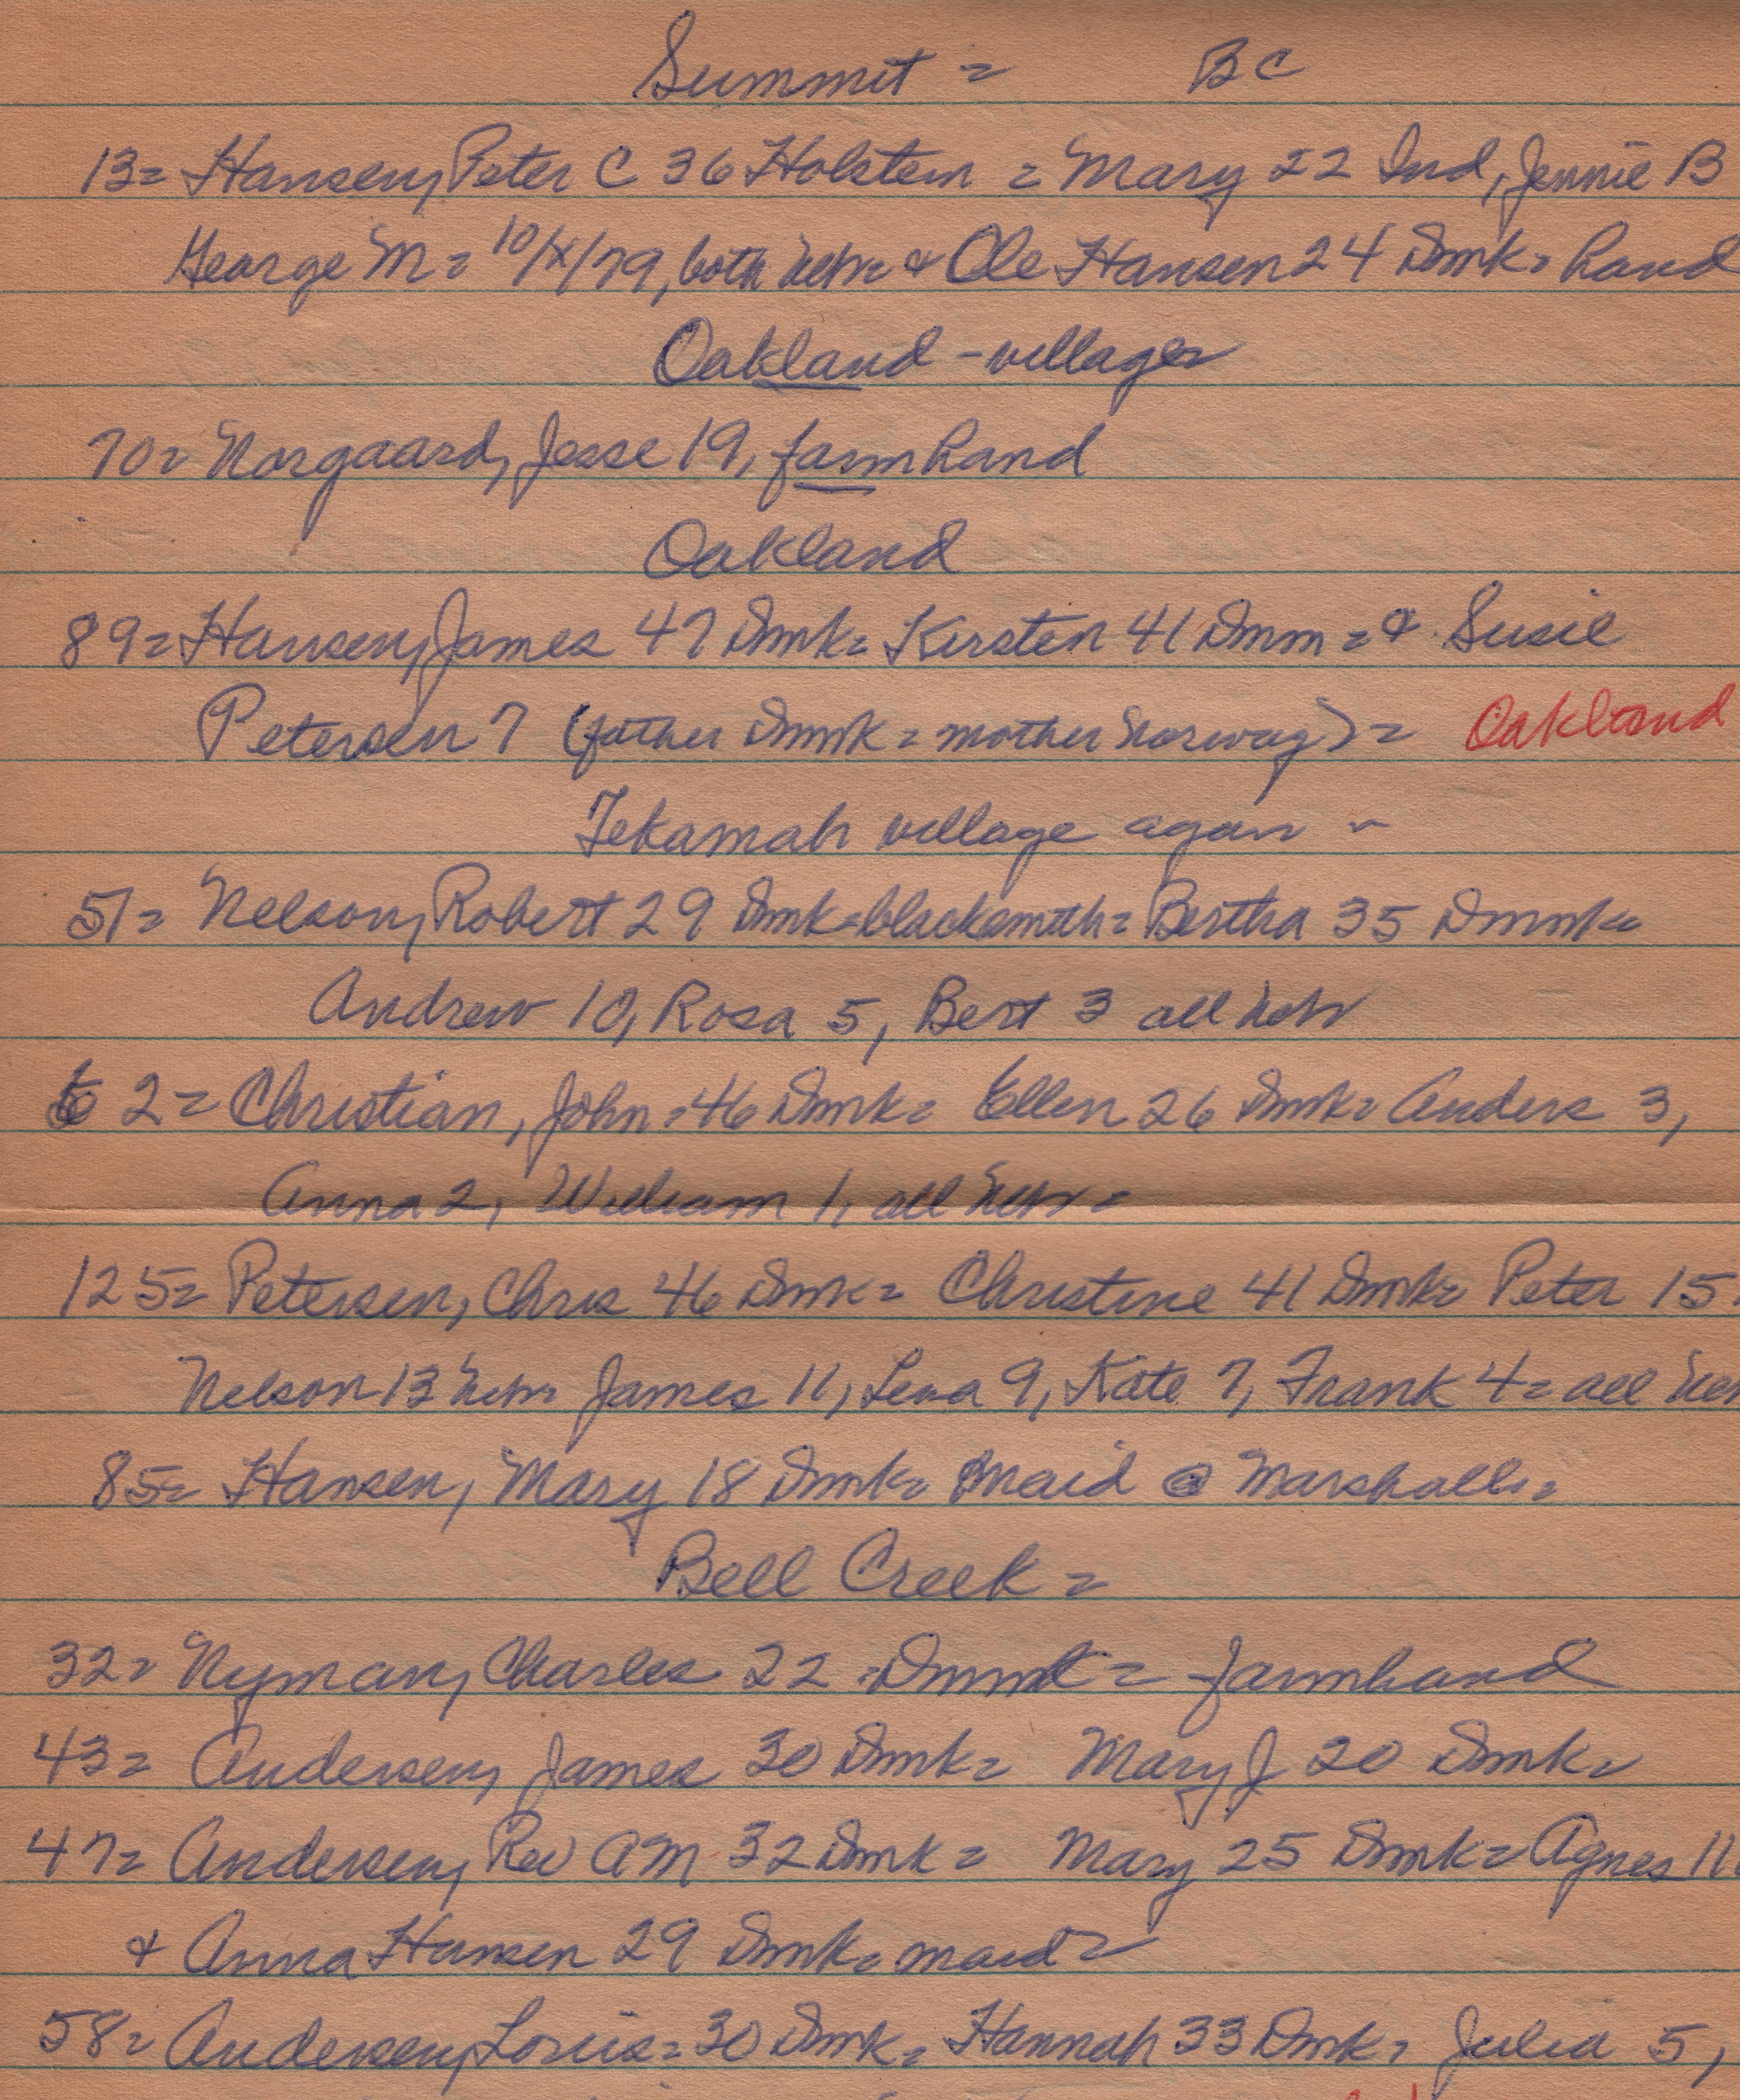 Summit = BC
13= Hansen, Peter C 36 Holstein = Mary 22 Ind, Jennie B
George M = 10/X/79, both Nebr= & Ole Hansen 24 Dmk= hand
Oakland - village=
70= Norgaard, Jesse 19, farmhand
Oakland
89= Hansen, James 47 Dmk= Kirsten 41 Dmm = & Susie
Petersen 7 (father Dmmk = mother Norway) = Oakland
Tekamah village again ~
51= Nelson, Robert 29 Dmk=blacksmith= Bertha 35 Dmmk=
Andrew 10, Rosa 5, Bert 3 all Nebr
2= Christian, John = 46 Dmk= Ellen 26 Dmk= Anders 3,
Anna 2, William 1, all Nebr=
125= Petersen, Chris 46 Dmk= Christine 41 Dmk= Peter 15
Nelson 13 Nebr= James 11, Lena 9, Kate 7, Frank 4= all Neb
85= Hansen, Mary 18 Dmk= maid @ Marshalls=
Bell Creek =
32= Nyman, Charles 22 =Dmmk = farmhand
43= Andersen, James 30 Dmk= Mary J 20 Dmk=
47= Andersen, Rev AM 32 Dmk= Mary 25 Dmk= Agnes 11
& Anna Hansen 29 Dmk= maid=
58= Andersen, Louis= 30 Dmk= Hannah 33 Dmk= Julia 5,